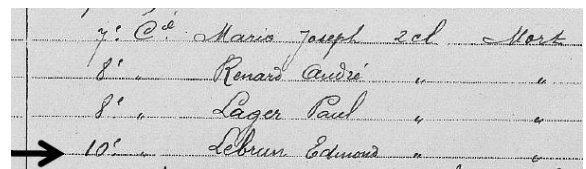 7e Cie Mario Joseph 2cl Mort
8e " Renard André " "
8e " Lager Paul " "
10e " Lebrun Edmond " "